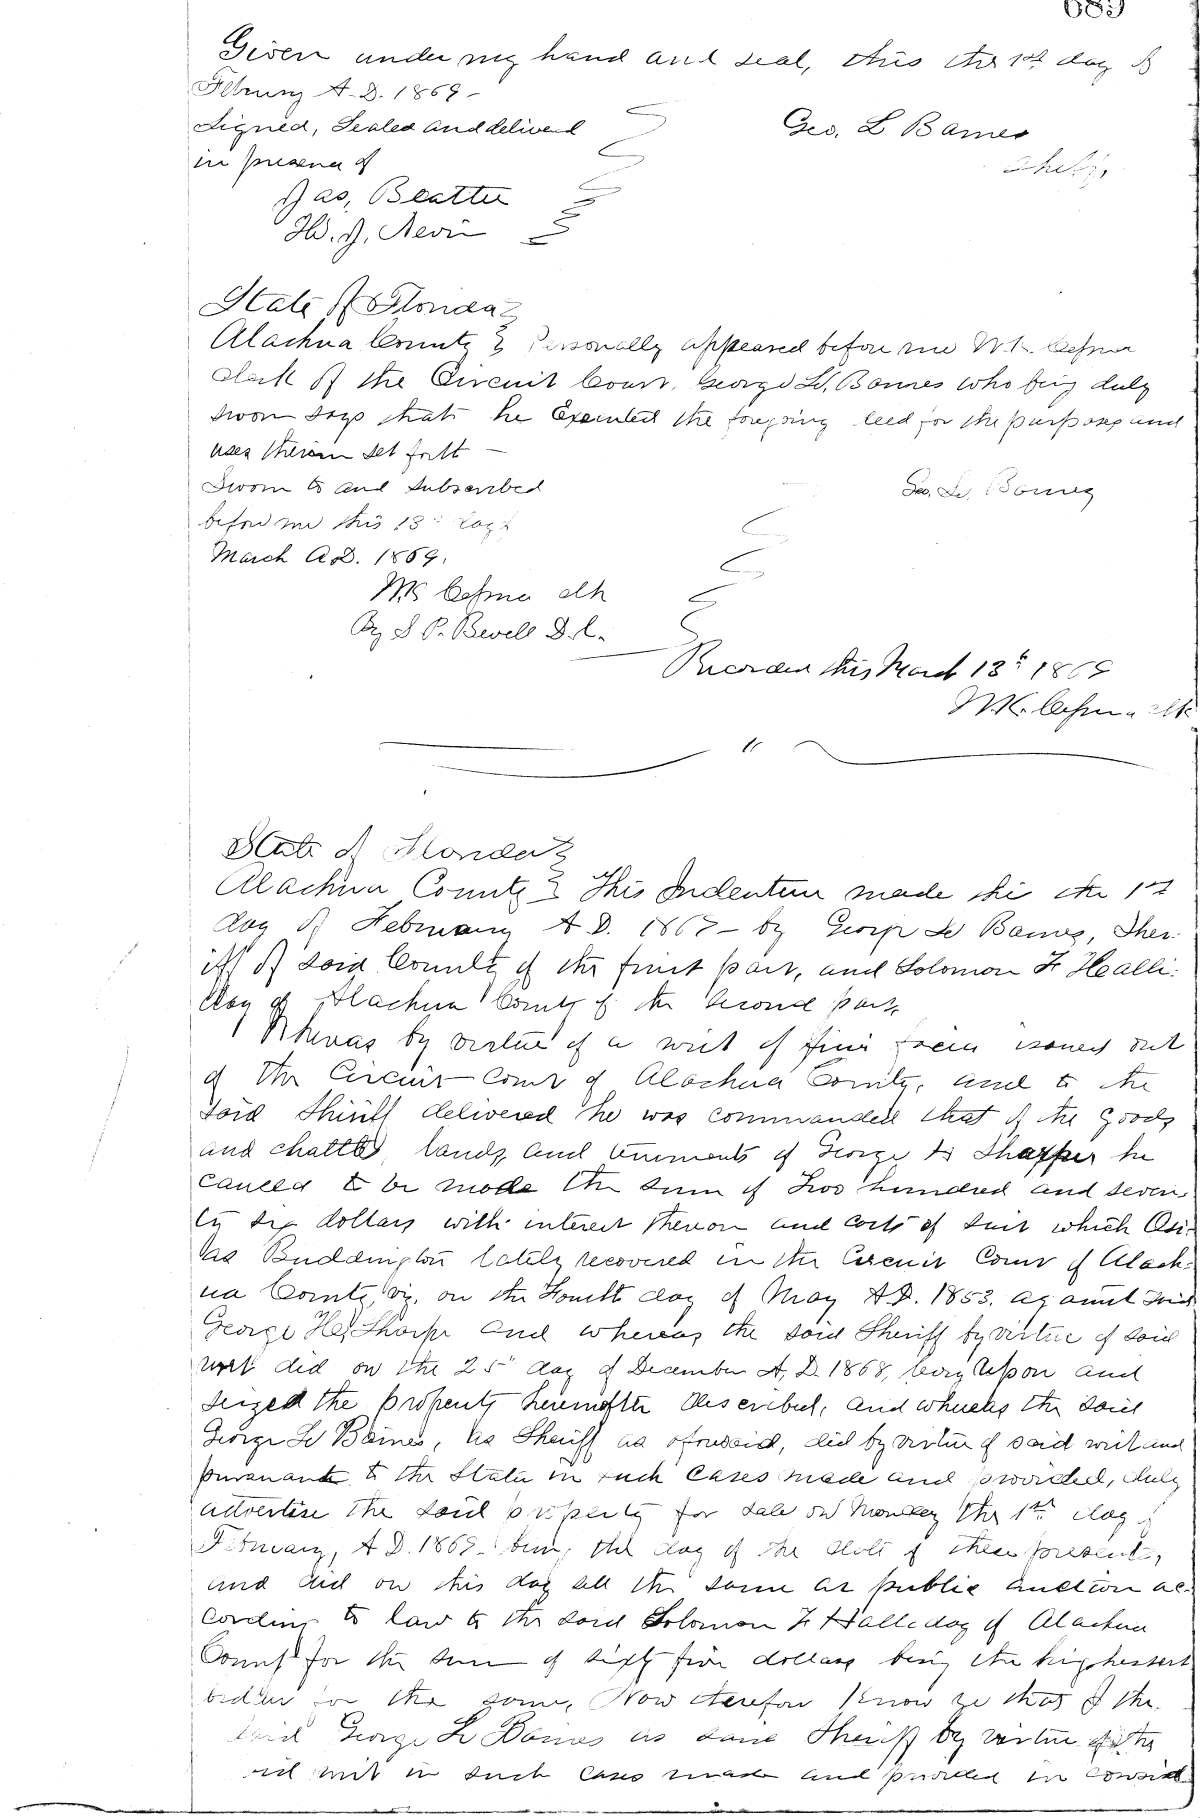 689
Given under my hand and seal, this the 1st day of
February A.D. 1869 -
Signed, Sealed and delivered
in presence of
Geo. L Barnes
Sheriff
Jas, Beattie
H. J. Nevin
State of Florida
Alachua County Personally appeared before me W.K. Cessna
clerk of the Circuit Court, George L. Barnes who being duly
sworn says that he Executed the foregoing deed for the purposes and
uses therein set forth -
Sworn to and subscribed
Geo. L. Barnes
before me this 13th day of
March A.D. 1869.
W.K Cessna clk
By S P. Bevell D.C.
Recorded this March 13th 1869
W.K. Cessna clk
State of Florida
Alachua County This Indenture made this the 1st
day of February A.D. 1869 - by George L Barnes, Sher-
iff of said County of the first part, and Solomon F Halli-
day of Alachua County of the second part,
Whereas by virtue of a writ of fieri facias issued out
of the Circuit Court of Alachua County, and to the
said Sheriff delivered he was commanded that of the goods
and chattles, lands, and tenements of George H Sharpe he
caused to be made the sum of Two hundred and seven-
ty six dollars with interest thereon and costs of suit which Osi-
as Buddington lately recovered in the Circuit Court of Alach-
ua County, viz, on the Fourth day of May A.D. 1853. against said
George H Sharpe and whereas the said Sheriff by virtue of said
writ did on the 25th day of December A.D. 1868, levy upon and
seized the property hereinafter described, and whereas the said
George L Barnes, as Sheriff as aforesaid, did by virtue of said writ and
pursuant to the Statu in such cases made and provided, duly
advertise the said property for sale on Monday the 1st day of
February, A.D. 1869 being the day of the date of these presents,
and did on this day sell the same at public auction ac-
cording to law to the said Solomon F Halliday of Alachua
County for the sum of sixty five dollars being the highessert
bidder for the same, Now therefore Know ye that I the
said George L Barnes as said Sheriff by virtue of the
said writ in such cases made and provided in consid-